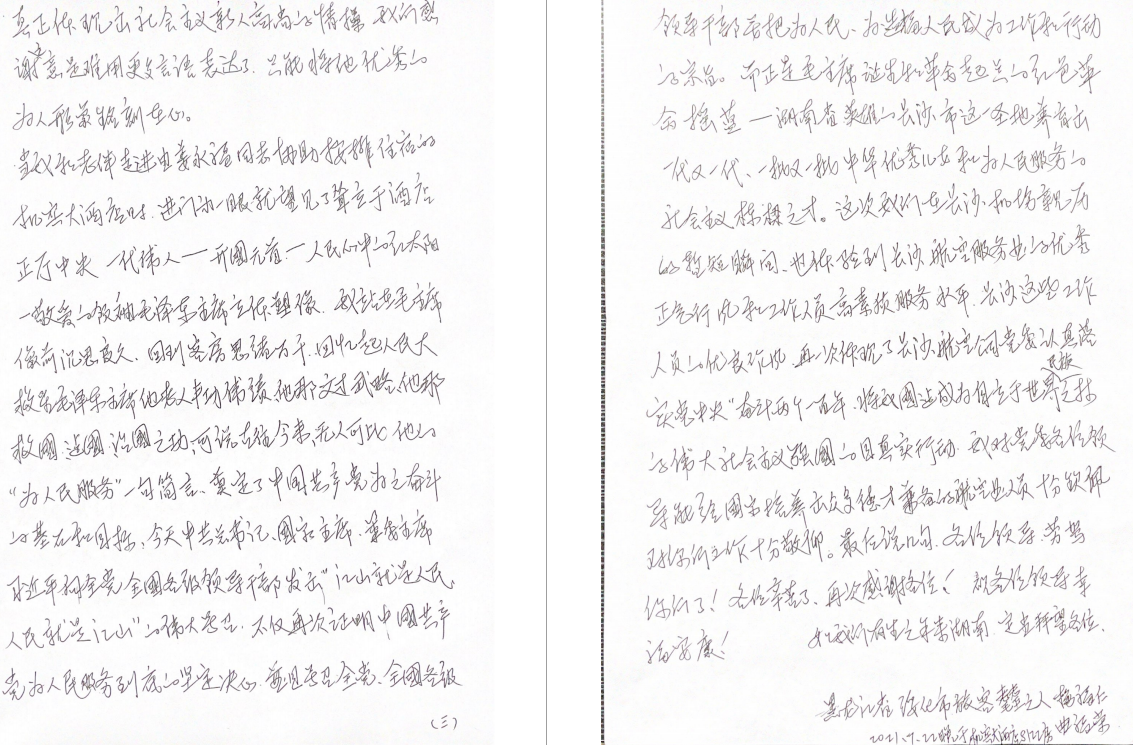 真正体现出社会主义新人高尚的情操，我们感
谢之意是难用更多言语表达了，只能将他优秀的
为人形象铭刻在心。
当我和老伴走进由姜永福同志协助按排住宿的
机坪大酒店时，进门第一眼就望见了耸立于酒店
正厅中央一代伟人——开國元首—人民心中的红太阳
—敬爱的领袖毛泽东主席立体塑像，我站在毛主席
像前沉思良久，回到客房思绪万千，回忆起人民大
救星毛泽东主席他老人丰功伟绩，他那文过武略，他那
救國、造國、治國之功，可说古往今来，无人可比，他的
“为人民服务”一句简言、奠定了中国共产党为之奋斗
的基石和目标，今天中共总书记、國家主席、军委主席
习近平向全党全國各级领导干部发出“江山就是人民，
人民就是江山”的伟大号召，不仅再次证明中國共产
党为人民服务到底的坚定决心，并且号召全党、全國各级
（三）
领导干部要把为人民、为造福人民成为工作和行动
的宗旨。而正是毛主席诞生和革命起点的红色革
命摇蓝—湖南省英雄的长沙市这一圣地养育出
一代又一代、一批又一批中华优秀儿女和为人民服务的
社会主义栋樑之才。这次我们在长沙机场亲历
的暂短瞬间、也体验到长沙航空服务业的优秀
正气行风和工作人员高素质服务水平，长沙这些工作
人员的优良作风，再一次体现了长沙航空公司党委认真落
实党中央“奋斗两个一百年，将我國造成为自立于世界民族之林
的伟大社会主义强國的目真实行动，我对党委各位领
导能给國家培养出众多德才兼备的航空业人员十分钦佩
对你们工作十分敬仰。最后说几句，各位领导，劳驾
你们了！各位辛苦了、再次感谢各位！祝各位领导幸
福安康！
如我们有生之年来湖南，定当拜望各位、
黑龙江省绥化市旅客
2021.7.22晚于机